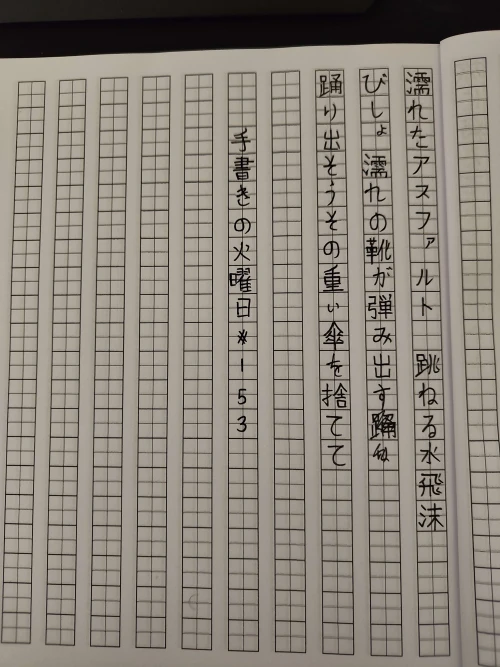 濡れたアスファルト　跳ねる水飛沫
びしょ濡れの靴が弾み出す踊れ
踊り出そうその重い傘を捨てて
手書きの火曜日*153